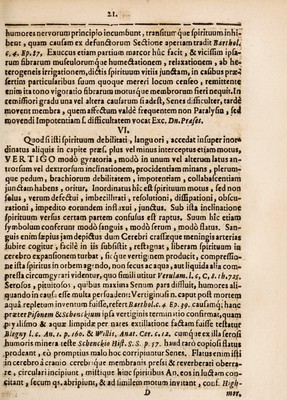 21.
humores nervorum principio incumbunt, transitumque spirituum inhi-
bent, quam causam ex defunctorum Sectione apertam tradit Barthol.
c. 4. Ep. 17. Exuccus etiam partium marcor huc facit, & vicissim ipsa-
rum fibrarum musculorumque humectationem, relaxationem, ab he-
terogeneis irrigationem, dictis spirituum vitiis junctam, in casibus præ-
sertim particularibus suam quoque mereri locum censeo, remittente
enim ita tono vigoratio fibrarum motusque membrorum fieri nequit. In
remissiori gradu una vel altera causarum si adest, Senes difficulter, tarde
movent membra, quem affectum valde frequentem non Paralysin, sed
movendi Impotentiam s. difficultatem vocat Exc. Dn. Præses.
VI.
Quod si isti spirituum debilitati, langvori, accedat insuper inor-
dinatus aliquis in capite præs. plus vel minus interceptus etiam motus,
VERTIGO modò gyratoria, modò in unum vel alterum latus an-
trorsum vel dextrorsum inclinationem, procidentiam minans, plerum-
que pedum, brachiorum debilitatem, impotentiam, collabascentiam
junctam habens, oritur. Inordinatus hîc est spirituum motus, sed non
solus, verum defectui, imbecillitati, resolutioni, dissipationi, obscu-
rationi, impedito eorundem influxui, junctus. Sub ista inclinatione
spirituum versus certam partem confusus est raptus. Suum hîc etiam
symbolum conferunt modò sanguis, modò serum, modò flatus. San-
guis enim sæpius jam depictus dum Cerebri crassiusque meningis arterias
subire cogitur, facile in iis subsistit, restagnat, liberam spirituum in
cerebro expansionem turbat, sicque vertiginem producit, compressio-
ne ista spiritus in orbem agendo, non secus ac aqua, aut liquida alia com-
pressa circumgyrari videntur, quo simili utitur Verulam. l. 6. C. C. tb. 725.
Serosos, pituitosos, quibus maxima Senum pars diffluit, humores ali-
quando in causa esse multa persuadent: Vertiginosu in. caput post mortem
aqua repletum inventum fuisse, refert Barthol. c. 4 Ep. 39. causamque hanc
præter Pisonem & Schenckium ipsa vertiginis termin tio confirmat, quam
ptyalismo & aquæ limpidæ per nares exstillatione factam fuisse testatur
Blegny l. c. An. 1. p. 160. & Willis, Anat. Cer. c. 12. cumque ex illa serosi
humoris minera teste Schenckio Hist. S. S. p. 17. haud rarò copiosi flatus
prodeant, eò promptius malo hoc corripiuntur Senes. Flatus enim isti
in cerebro à cranio cerebrique membranis pressi & reverberati oberra-
re, circulari incipiunt, mistique hinc spiritibus An, eos in luctam con-
citant, secum que abripiunt, & ad similem motum invitant, conf. High-
D mor,